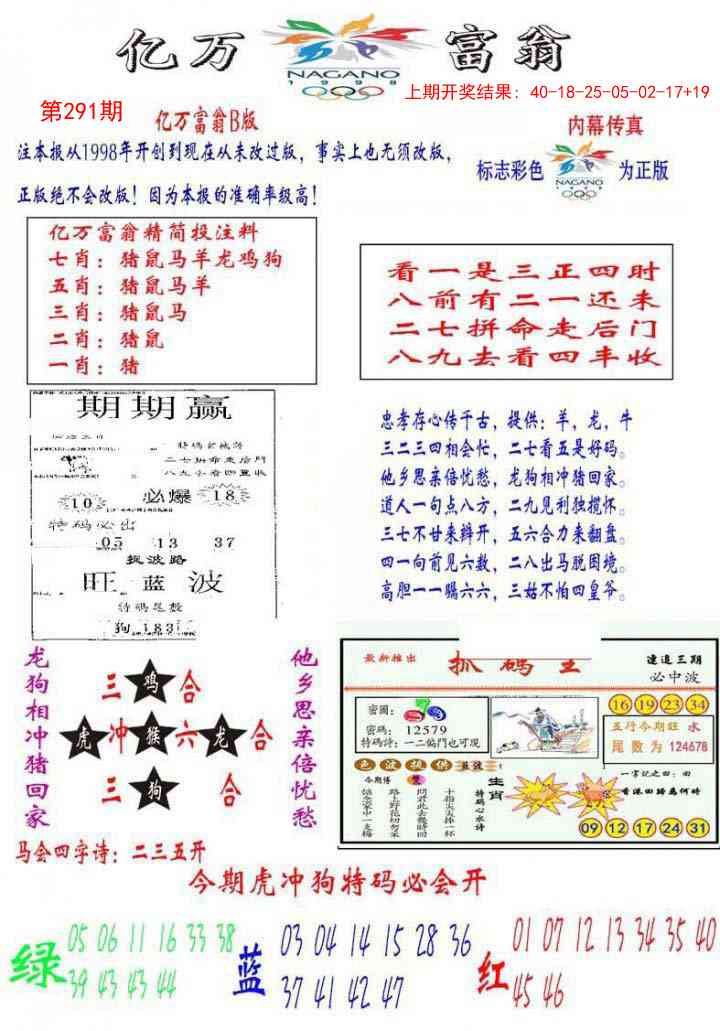 亿万富翁
NAGANO
1998
上期开奖结果：40-18-25-05-02-17+19
第291期
亿万富翁B版
内幕传真
注本报从1998年开创到现在从未改过版，事实上也无须改版，
正版绝不会改版！因为本报的准确率级高！
标志彩色
NAGANO
为正版
亿万富翁精简投注料
七肖：猪鼠马羊龙鸡狗
五肖：猪鼠马羊
三肖：猪鼠马
二肖：猪鼠
一肖：猪
看一是三正四时
八前有二一还未
二七拼命走后门
八九去看四丰收
期期赢
二七拼命走后门
八九去看四豐收
10 必爆 18
特码必出
05 13 37
捉波路
旺蓝波
特码尾数
狗 183
忠孝存心传千古，提供：羊，龙，牛
三二三四相会忙，二七看五是好码。
他乡思亲倍忧愁，龙狗相冲猪回家。
道人一句点八方，二九见利独揽怀。
三七不甘来辩开，五六合力来翻盘。
四一向前见六数，二八出马脱困境。
高胆一一赐六六，三姑不怕四皇爷。
龙狗相冲猪回家
三鸡合
虎冲猴六龙合
三狗合
他乡思亲倍忧愁
马会四字诗：二三五开
最新推出
抓码王
速追三期
必中波
16 19 23 34
密圈：
密碼：12579
特碼詩：一二偏門也可現
五行今期旺 水
尾数为124678
色波提供
今期傳
生肖
特碼心水詩
十指尖尖捧一杯
問君此去幾時回
路上野花切勿采
一字記之曰：回
香港回歸爲何時
09 12 17 24 31
今期虎冲狗特码必会开
绿
05 06 11 16 33 38
39 43 43 44
蓝
03 04 14 15 28 36
37 41 42 47
红
01 07 12 13 34 35 40
45 46